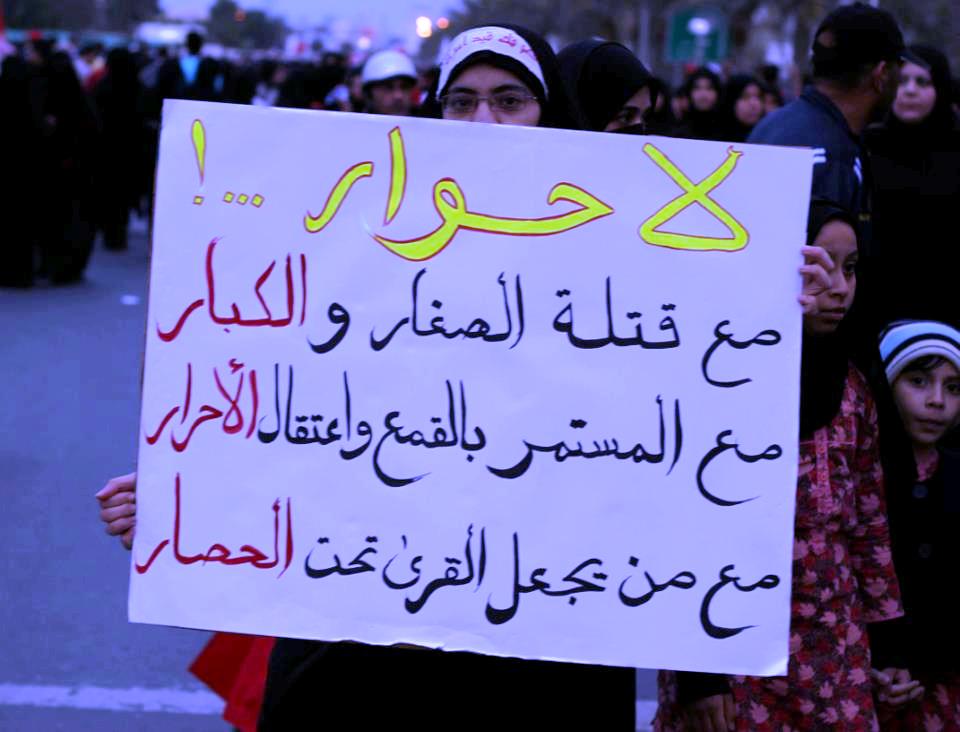 لا حوار ...!
مع قتلة الصغار و الكبار
مع المستمر بالقمع واعتقال الأحرار
مع من يجعل القرى تحت الحصار